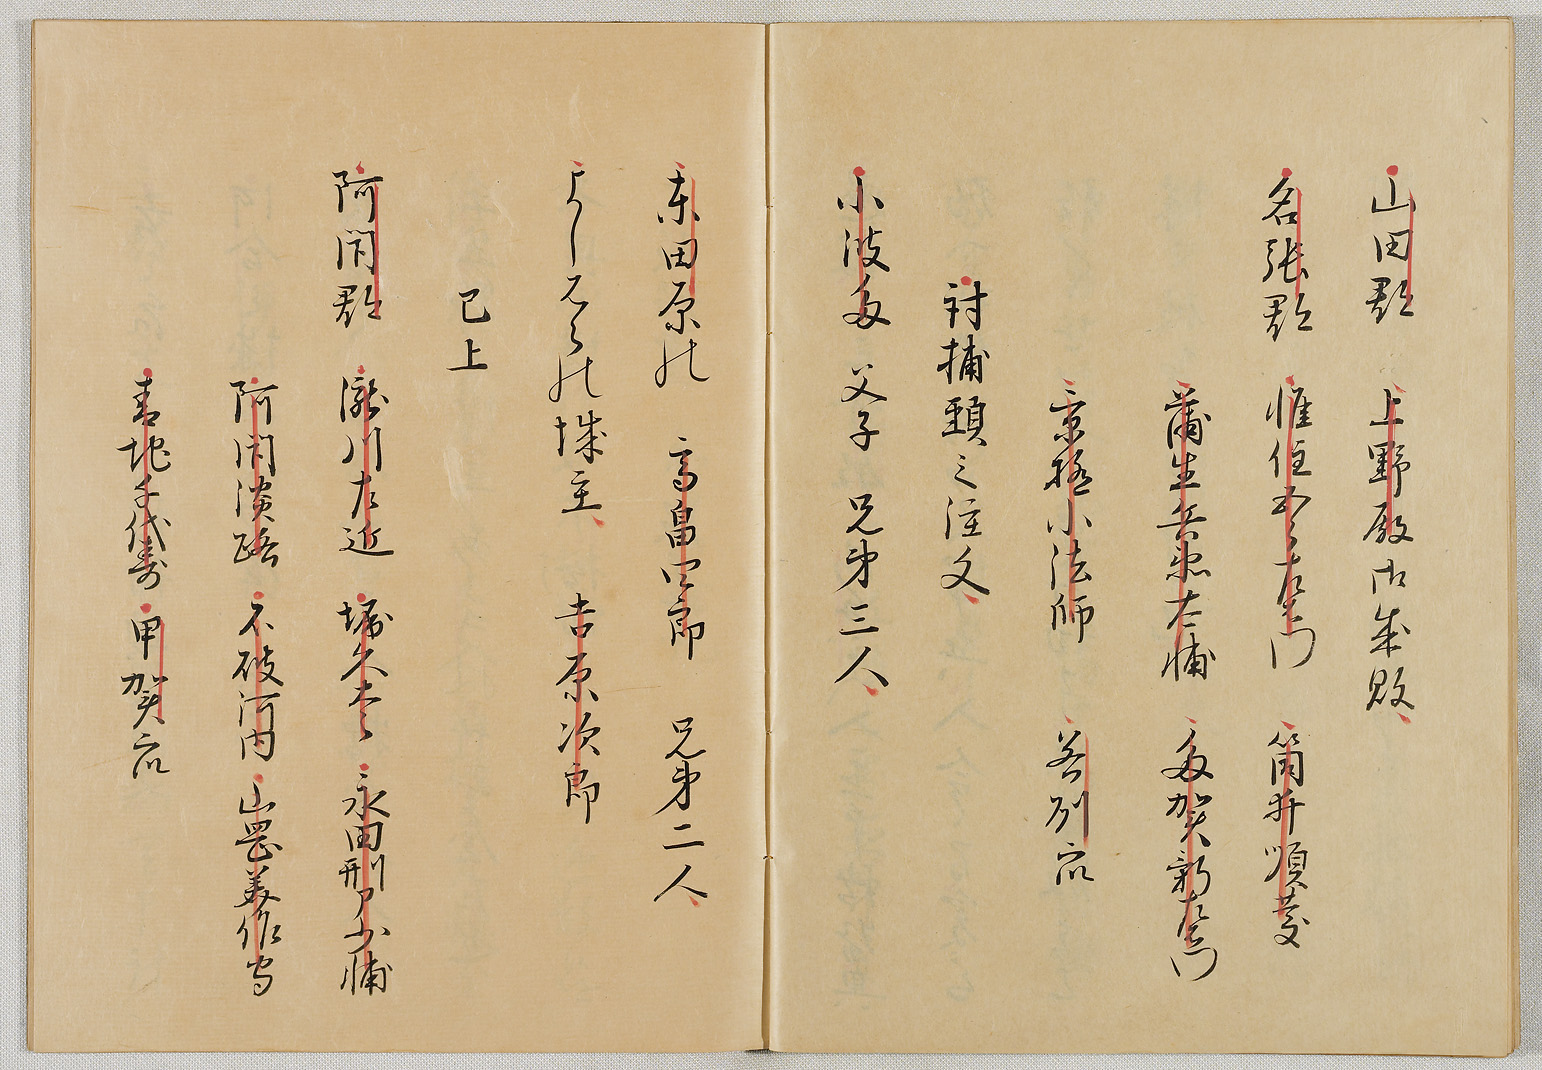 山田郡　上野殿御成敗
名張郡　惟住五郎左衛門　筒井順慶
蒲生兵衛大輔　多賀新左衛門
京極小法師　若州衆
討捕頸之注文
小波多　父子　兄弟三人
東田原の　高畠四郎　兄弟二人
よしはらの城主　吉原次郎
已上
阿閇郡　瀧川左近　堀久太郎　永田刑部少輔
阿閇淡路　不破河内　山岡美作守
青地千代寿　甲賀衆